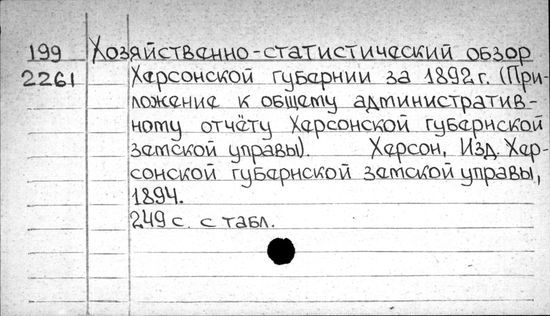 199 Хозяйственно-статистический обзор
2261 Херсонской губернии за 1892 г. (При-
ложение к общему административ-
ному отчёту Херсонской губернской
земской управы). Херсон, Изд. Хер-
сонской губернской земской управы,
1894.
249 с. с табл.